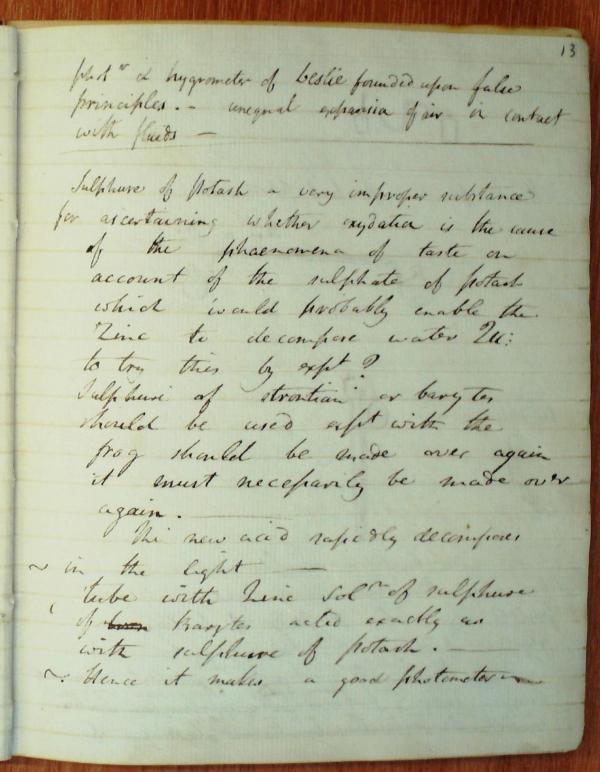 13
photr & hygrometer of Leslie founded upon false
principles. - unequal expansion of air in contact
with fluids —
Sulphure of Potash a very improper substance
for ascertaining whether oxydation is the cause
of the phaenomena of taste on
account of the sulphate of potash
which would probably enable the
Zinc to decompose water Qu:
to try this by expt ?
Sulphure of strontian or barytes
should be used expt with the
frog should be made over again
it must necessarily be made over
again. —
The new acid rapidly decomposes
~ in the light —
tube with Zinc Soln of sulphure
of Barytes acted exactly as
with sulphure of potash. —
~ Hence it makes a good photometer ~